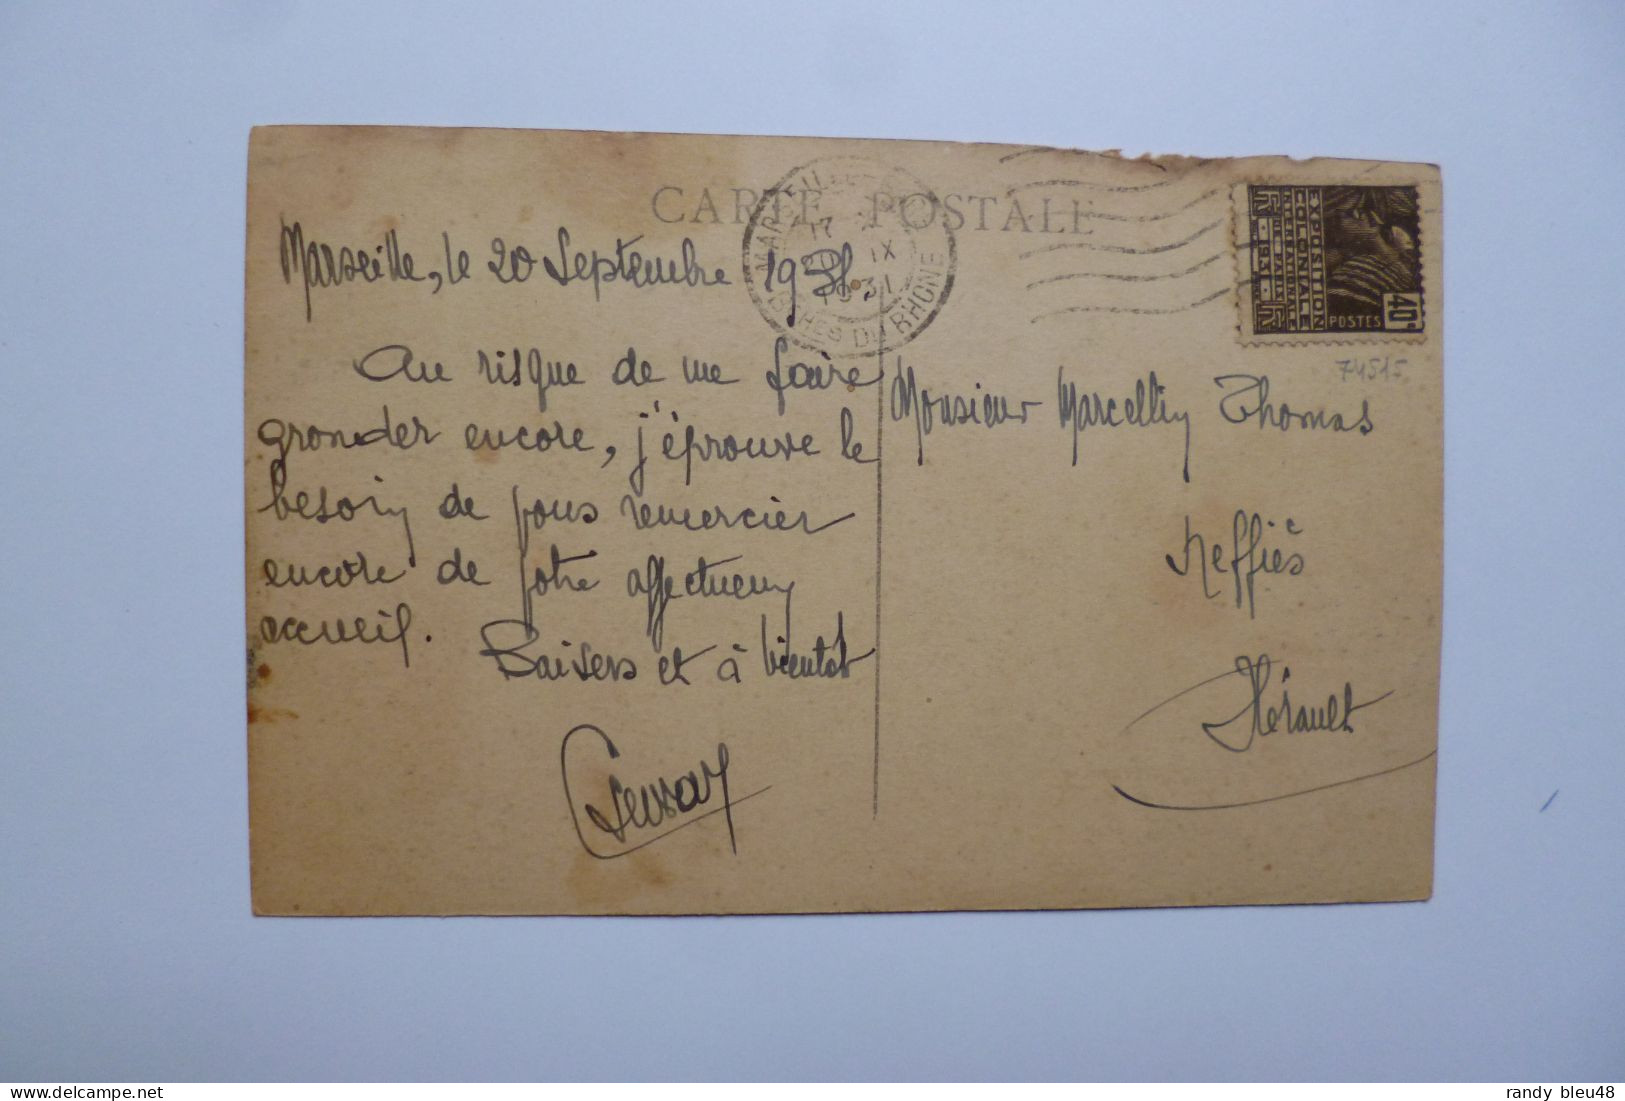 CARTE POSTALE
Marseille, le 20 Septembre 1931.
Au risque de me faire
gronder encore, j'éprouve le
besoin de vous remercier
encore de votre affectueux
accueil.
Baisers et à bientot
MARSEILLE
17
20 IX
1931
BCHES DU RHONE
EXPOSITION
COLONIALE
INTERNATIONALE
PARIS
1931
POSTES
40c
74515
Monsieur Marcellin Thomas
Neffiès
Hérault
randy bleu48